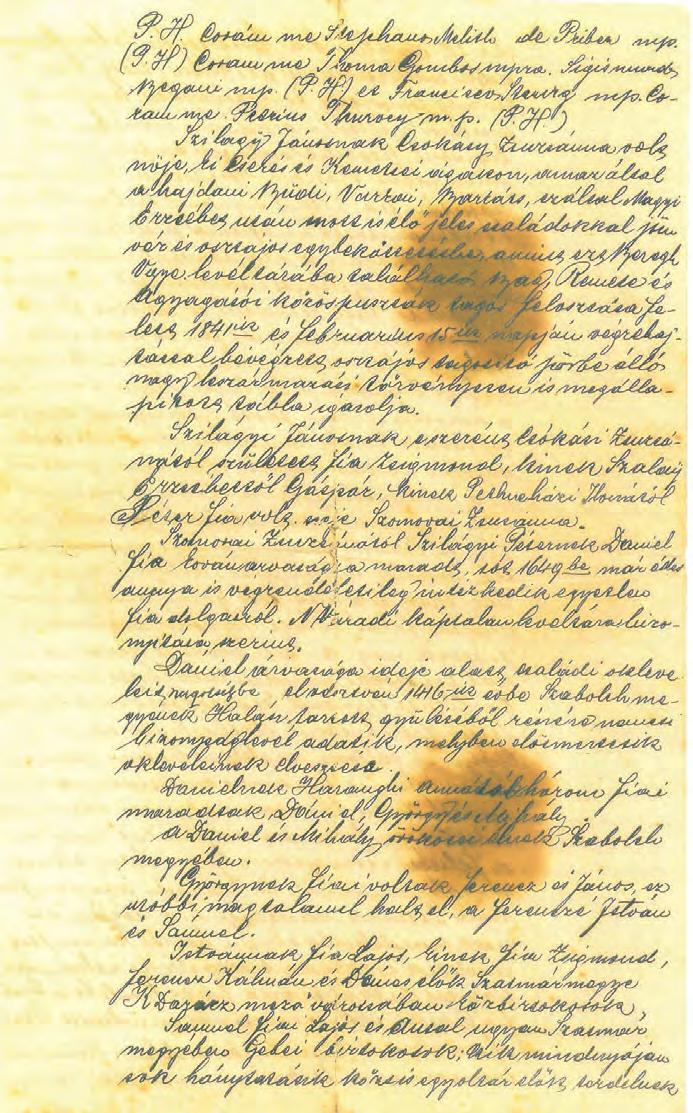 P. H. Coram me Stephano Melith de Briber mp.
(P. H) Coram me Thoma Gombos mpra. Sigismundo
mp. (P. H) et Francisco mp. Co-
ram me. Petrius Thurocy m.p. (P. H)
Szilágyi Jánosnak Csokásy Zsuzsánna volt
nője, ki Cserés és Kemecsei ágakon, amaz által
a hajdani Büdi, Vartai, ezáltal Magyi
Erzsébet után most is élő jeles családokkal jön
vér és osztályos egybeköttetésbe, amint ezt Beregh
Vgye levéltárába található nagy, Remete és
közöspuszták tagos felosztása fe-
lett 1841ik év februárius 15ik napján végrehaj-
tással bevégzett osztályos tagosító pörbe álló
nagy leszármazási törvényesen is megálla-
pított tábla igazolja.
Szilágyi Jánosnak eszerént Csókási Zsuzsá-
nától született fia Zsigmond, kinek Szalay
Erzsébettől Gáspár, kinek Petneházi Ilonától
Péter fia volt, neje Szomorai Zsuzsanna.
Szomorai Zsuzsánától Szilágyi Péternek Dániel
fia korán árvaságra maradt, sőt 1649be már édes
annya is végrendeletileg intézkedik egyetlen
fia dolgairól. N Váradi káptalan levéltára bizo-
nyítása szerint.
Dániel árvasága ideje alatt, családi okleve-
leit nagyrészbe elvesztvén 1446ik évbe Szabolch me-
gyének Halász tartott gyűléséből részére nemesi
bizonyságlevél adatik, melyben elösmertetik
okleveleinek elveszése.
Dánielnek Haranghi Annától három fiai
maradtak Dániel, György és Mihály.
a Dániel és Mihály örökösei élnek Szabolch
megyében.
Györgynek fiai voltak Ferencz és János, ez
utóbbi magtalanul halt el, a Ferenczé István
és Samuel.
Istvánnak fia Lajos, kinek fia Zsigmond,
Ferencz Kálmán és Dénes élők Szatmármegye
K Darócz mező városában közbirtokosok,
Samuel fiai Lajos és Antal ugyan Szatmár
megyében Gebei birtokosok; kik mindnyájan
sok hányatásik közt is egyoltár előtt térdelnek